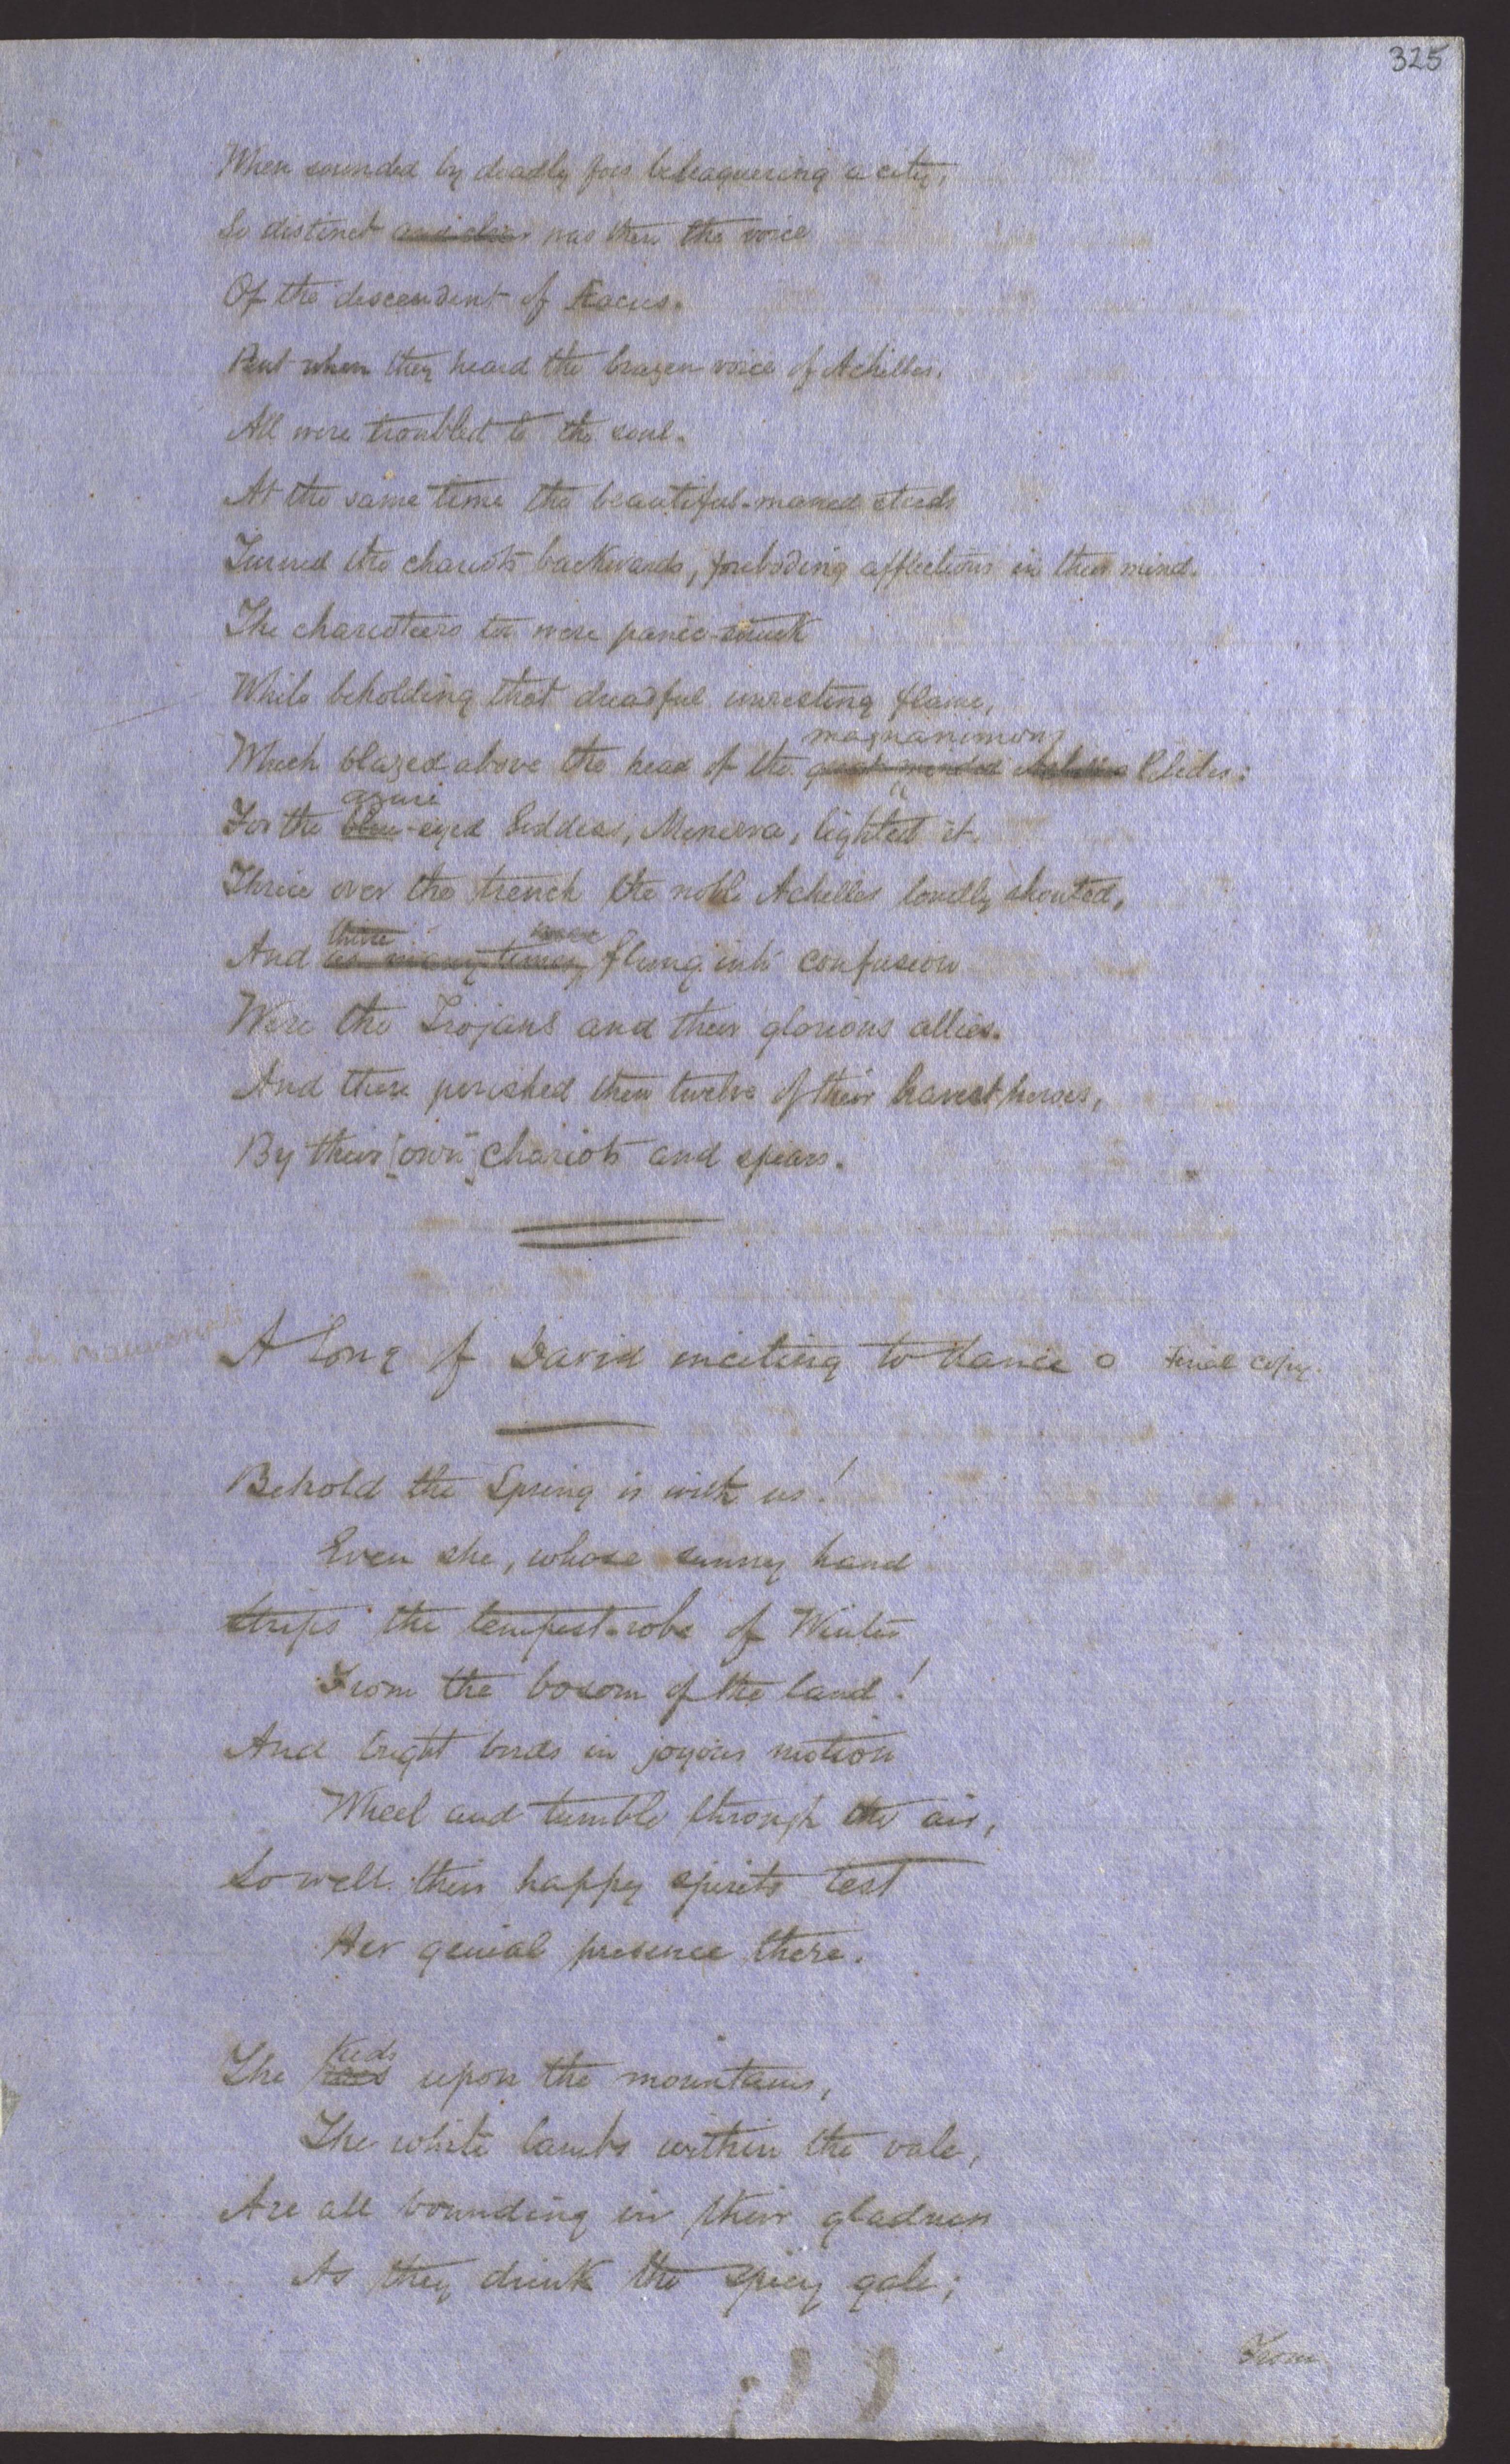 325
When sounded by deadly foes beleaguering a city,
So distinct and clear was then the voice
Of the descendent of Eacus.
But when they heard the brazen voice of Achilles,
All were troubled to the soul.
At the same time the beautiful-maned steeds
Turned the chariots backwards, foreboding afflictions in their mind.
The charioteers too were panic-struck
While beholding that dreadful unresting flame,
magnanimous
Which blazed above the head of the great-minded Pelides:
azure
For the blue-eyed Goddess, Minerva, lighted it.
Thrice over the trench the noble Achilles loudly shouted,
thrice
And as many times flung into confusion
Were the Trojans and their glorious allies.
And there perished then twelve of their bravest heroes,
By their [own] chariots and spears.
A Song of David inciting to dance
Behold the Spring is with us!
Even she, whose sunny hand
Strips the tempest-robe of Winter
From the bosom of the land!
And bright birds in joyous motion
Wheel and tumble through the air,
So well their happy spirits test
Her genial presence there.
Kids
The roes upon the mountains,
The white lambs within the vale,
Are all bounding in their gladness
As they drink the spicy gale;
From